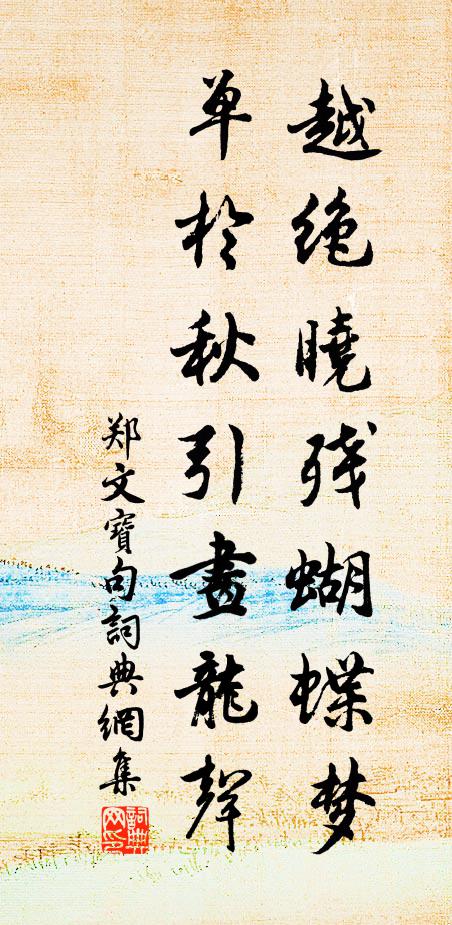 越绝曉残蝴蝶梦
单於秋引畫龍聲
郑文寶句詞典網集
詞典網印